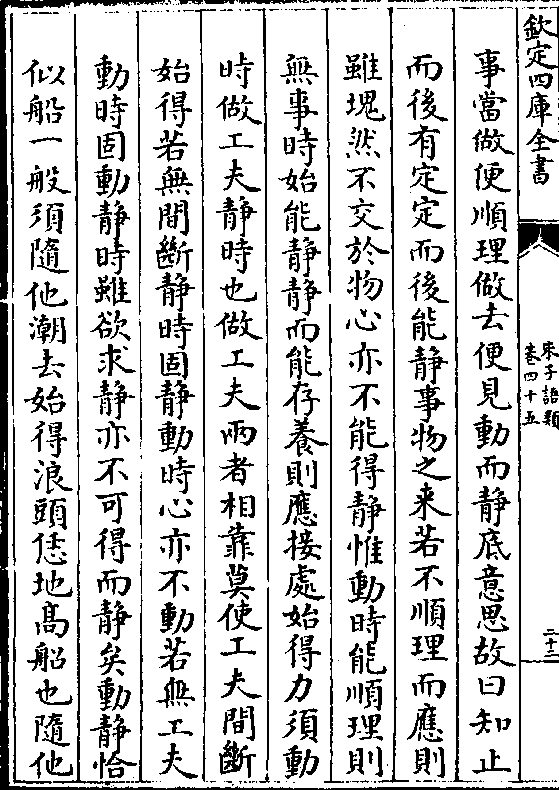 欽定四庫全書
朱子語類
卷四十五
二十三
事當做便順理做去便見動而靜底意思故曰知止
而後有定定而後能靜事物之来若不順理而應則
雖塊然不交於物心亦不能得靜惟動時能順理則
無事時始能靜靜而能存養則應接處始得力須動
時做工夫靜時也做工夫兩者相靠莫使工夫間斷
始得若無間斷靜時固靜動時心亦不動若無工夫
動時固動靜時雖欲求靜亦不可得而靜矣動靜恰
似船一般須隨他潮去始得浪頭恁地高船也隨他